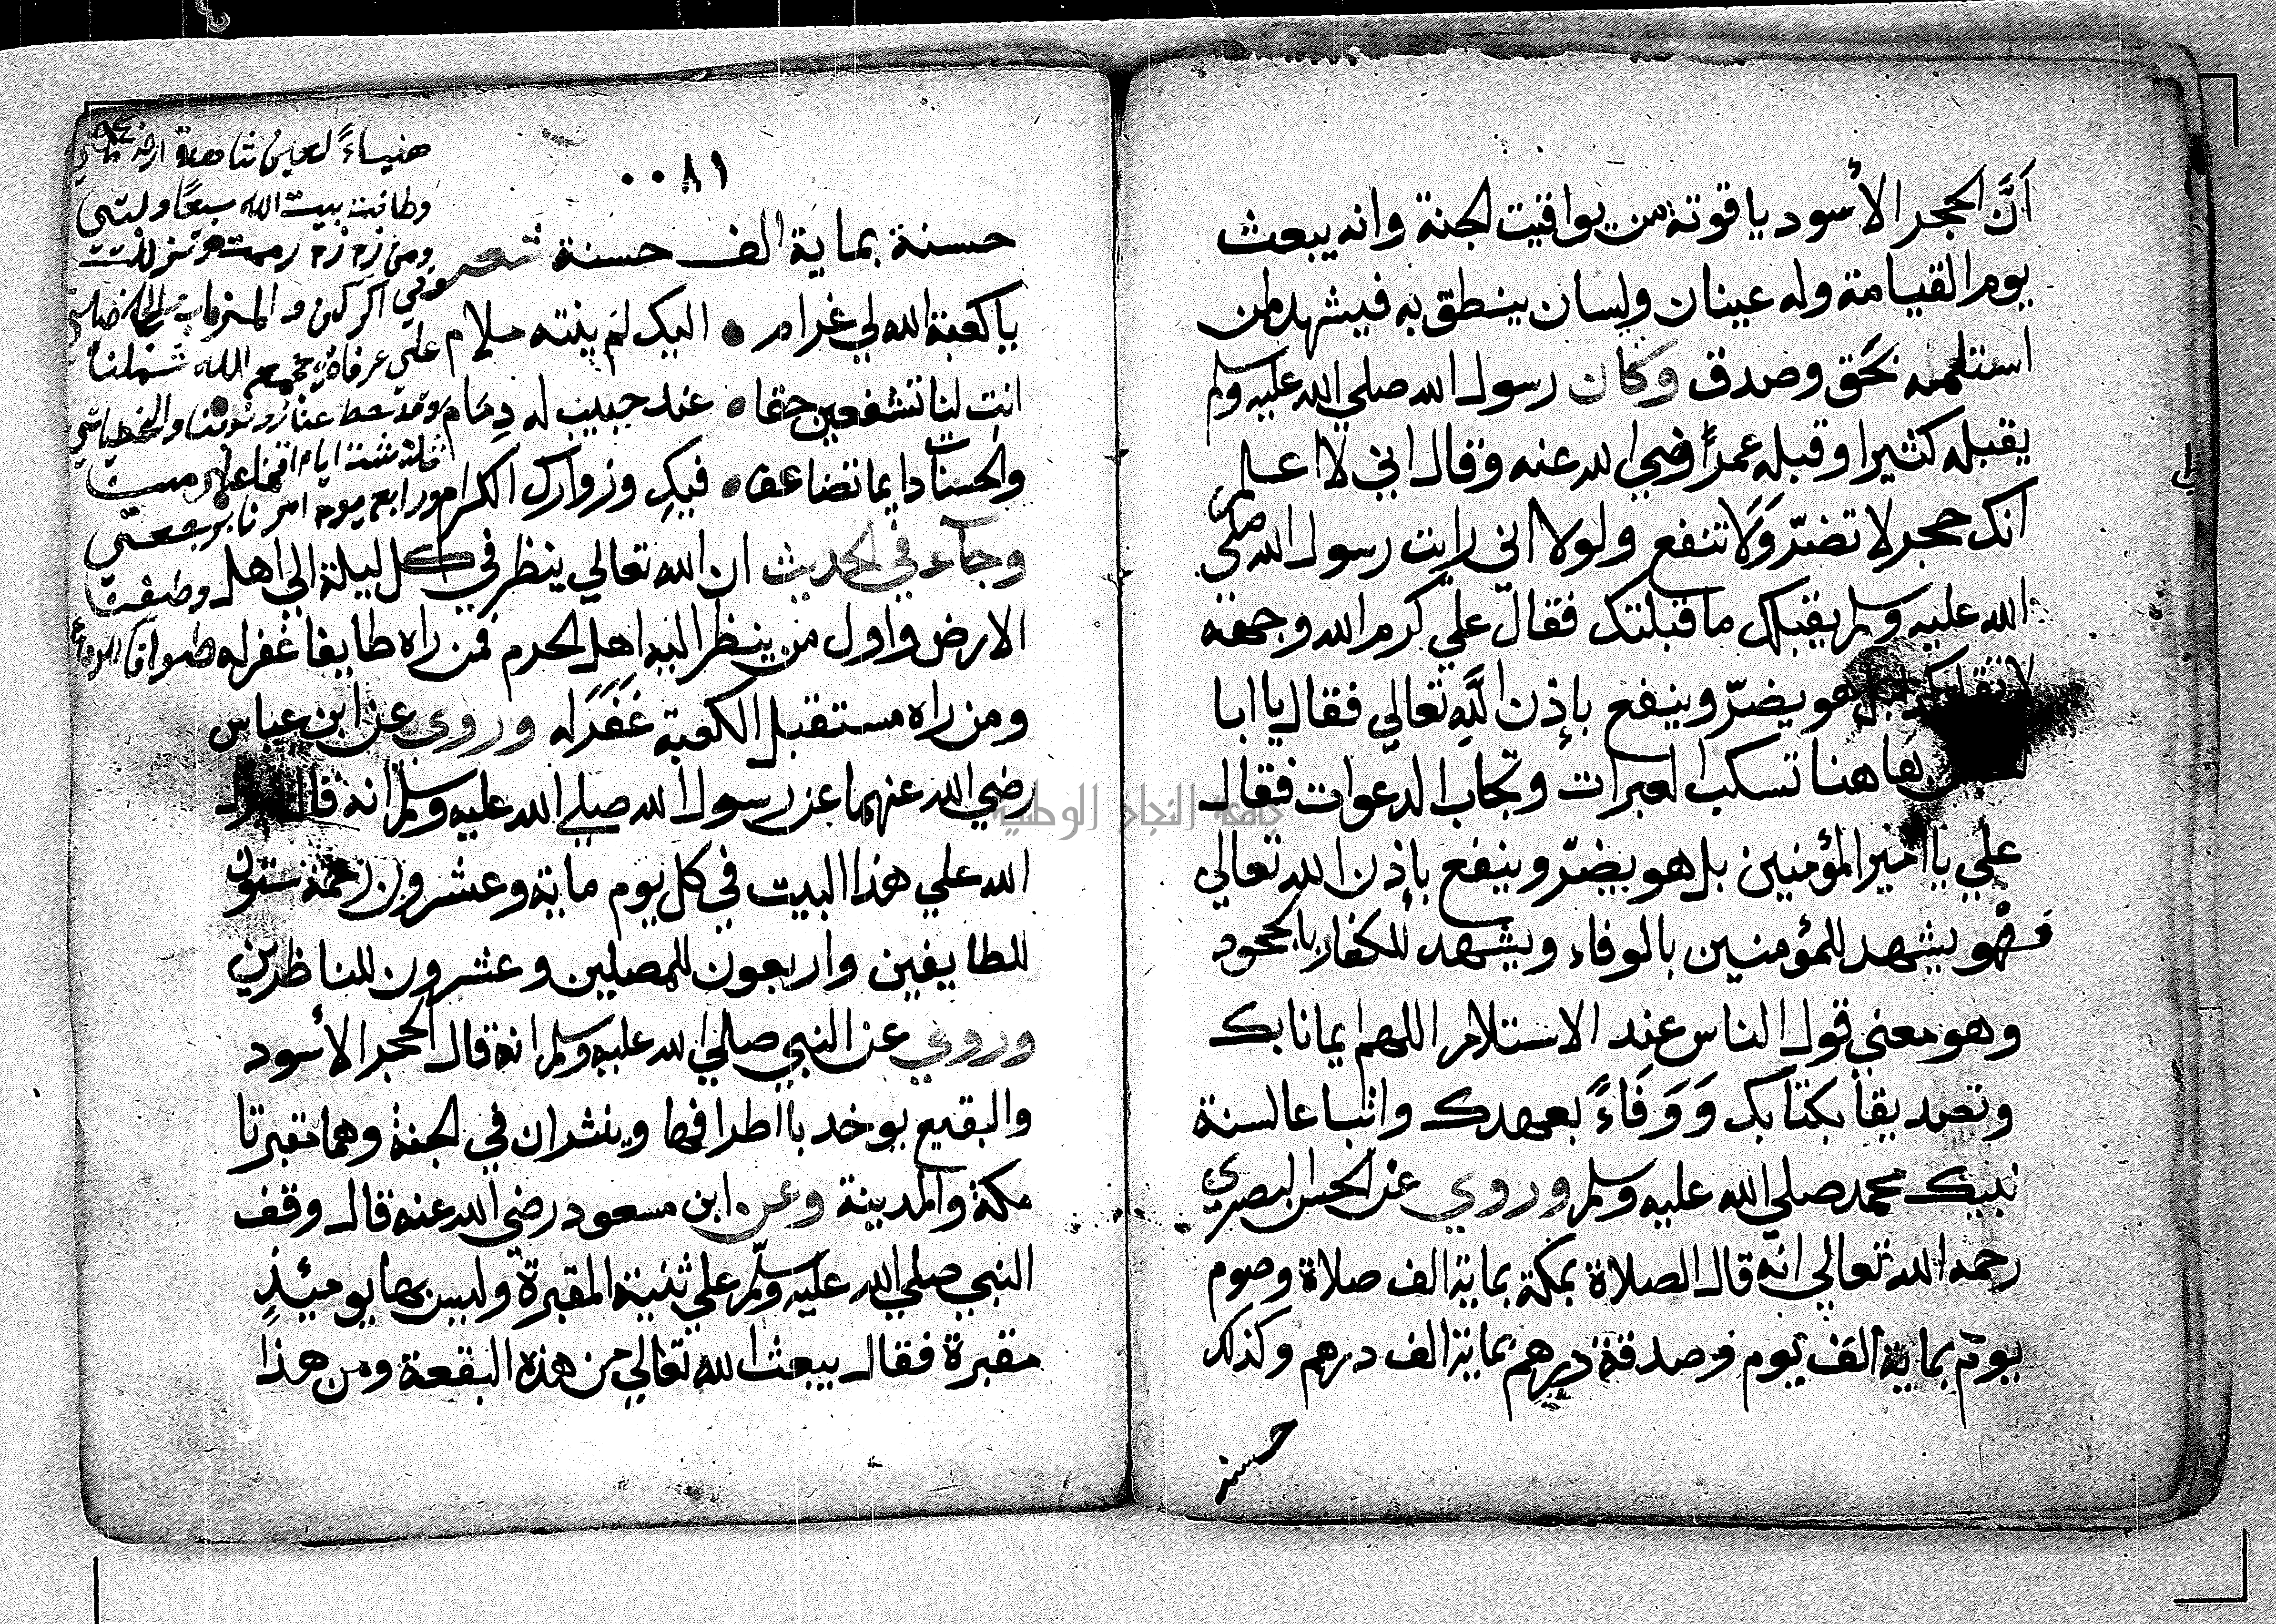 أنَّ الحجر الأسود ياقوتة من يواقيت الجنة وانه يبعث
يوم القيامة وله عينان ولسان ينطق به فيشهد لمن
استلمه بحق وصدق وكان رسول الله صلي الله عليه وسلم
يقبله كثيرا وقبله عمر رضي الله عنه وقال اني لا اعلم
انك حجر لا تضرّ وَلا تنفع ولولا اني رايت رسول الله صلي
الله عليه وسلم يقبلك ما قبلتك فقال علي كرم الله وجهه
هو يضرّ وينفع بإذن الله تعالي فقال يا ابا
هاهنا تسكب العبرات وتجاب الدعوات فقال
علي يا امير المؤمنين بل هو يضرّ وينفع بإذن الله تعالي
فهْو يشهد للمؤمنين بالوفاء ويشهد للكفار بالجحود
وهو معني قول الناس عند الاستلام اللهم ايمانا بك
وتصديقا بكتابك وَوَفَاءً بعهدك واتباعا لسنة
نبيك محمد صلي الله عليه وسلم وروي عن الحسن البصري
رحمه الله تعالي انه قال الصلاة بمكة بماية الف صلاة وصوم
يوم بماية الف يوم وصدقة درهم بماية الف درهم وكذلك
حسنة
٠٠٨١
حسنة بماية الف حسنة شعر
يا كعبة الله لي غرام • اليك لم ينته ملام
انتِ لنا تشفعين حقا • عند حبيب له ذِمَام
والحسنات دايما تضاعف • فيكِ وزوارك الكرام
وجآء في الحديث ان الله تعالي ينظر في كل ليلة الي اهل
الارض واول من ينظر اليه اهل الحرم فمن راه طايفا غفر له
ومن راه مستقبل الكعبة غَفَرَ له وروي عن ابن عباس
رضي الله عنهما عن رسول الله صلي الله عليه وسلم انه قال ينزل
الله علي هذا البيت في كل يوم ماية وعشرون رحمة ستون
للطايفين واربعون للمصلين وعشرون للناظرين
وروي عن النبي صلي الله عليه وسلم انه قال الحجر الأسود
والبقيع يوخد بااطرافها وينثران في الجنة وهما مقبرتا
مكة والمدينة وعن ابن مسعود رضي الله عنه قال وقف
النبي صلي الله عليه وسلّم علي ثنية المقبرة وليس بها يوميئذٍ
مقبرة فقال يبعث الله تعالي من هذه البقعة ومن هذا
هنياءً لعين شاهدة
وطافت ببيت الله سبعًا ولبتي
ومن زمزم
وفي الركن والميزاب
علي عرفاة يجمع الله شملنا
وقد حط عنا ذنوبنا والخطياتي
ثلاثت ايام اقمنا علي
ورابع يوم امرنا برجعتي
وطفت
طواف
جامعة النجاح الوطنية